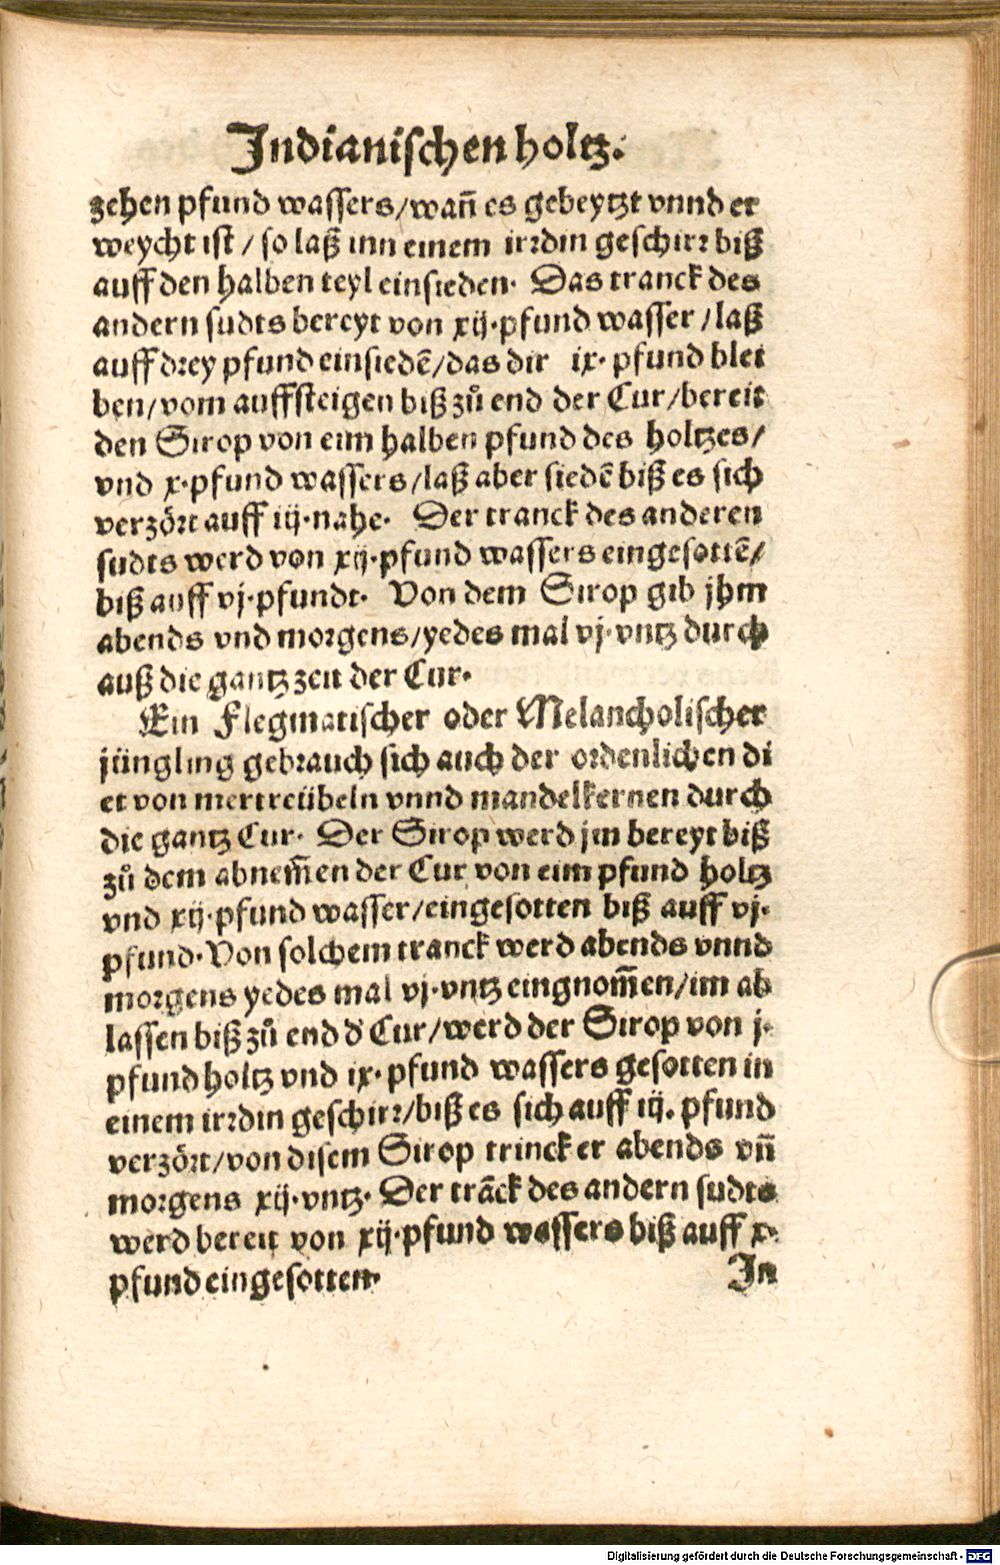 Indianischen holtz.
zehen pfund wassers/wañ es gebeytzt vnnd er
weycht ist / so laß inn einem irrdin geschirr biß
auff den halben teyl einsieden. Das tranck des
andern sudts bereyt von xij.pfund wasser /laß
auff drey pfund einsiedē/das dir ix. pfund blei
ben/vom auffsteigen biß zů end der Cur/bereit
den Sirop von eim halben pfund des holtzes/
vnd x.pfund wassers/laß aber siedē biß es sich
verzört auff iij.nahe. Der tranck des anderen
sudts werd von xij.pfund wassers eingesottē/
biß auff vj.pfundt. Von dem Sirop gib jhm
abends vnd morgens/yedes mal vj.vntz durch
auß die gantz zeit der Cur.
Ein Flegmatischer oder Melancholischer
jüngling gebrauch sich auch der ordenlichen di
et von mertreübeln vnnd mandelkernen durch
die gantz Cur. Der Sirop werd jm bereyt biß
zů dem abnem̄en der Cur von eim pfund holtz
vnd xij.pfund wasser/eingesotten biß auff vj.
pfund.Von solchem tranck werd abends vnnd
morgens yedes mal vj.vntz eingnom̄en/im ab
lassen biß zů end d' Cur/werd der Sirop von j.
pfund holtz vnd ix.pfund wassers gesotten in
einem irrdin geschirr/biß es sich auff iij. pfund
verzört/von disem Sirop trinck er abends vñ
morgens xij.vntz. Der trāck des andern sudts
werd bereit von xij.pfund wassers biß auff x.
pfund eingesotten.
In
Digitalisierung gefördert durch die Deutsche Forschungsgemeinschaft - DFG